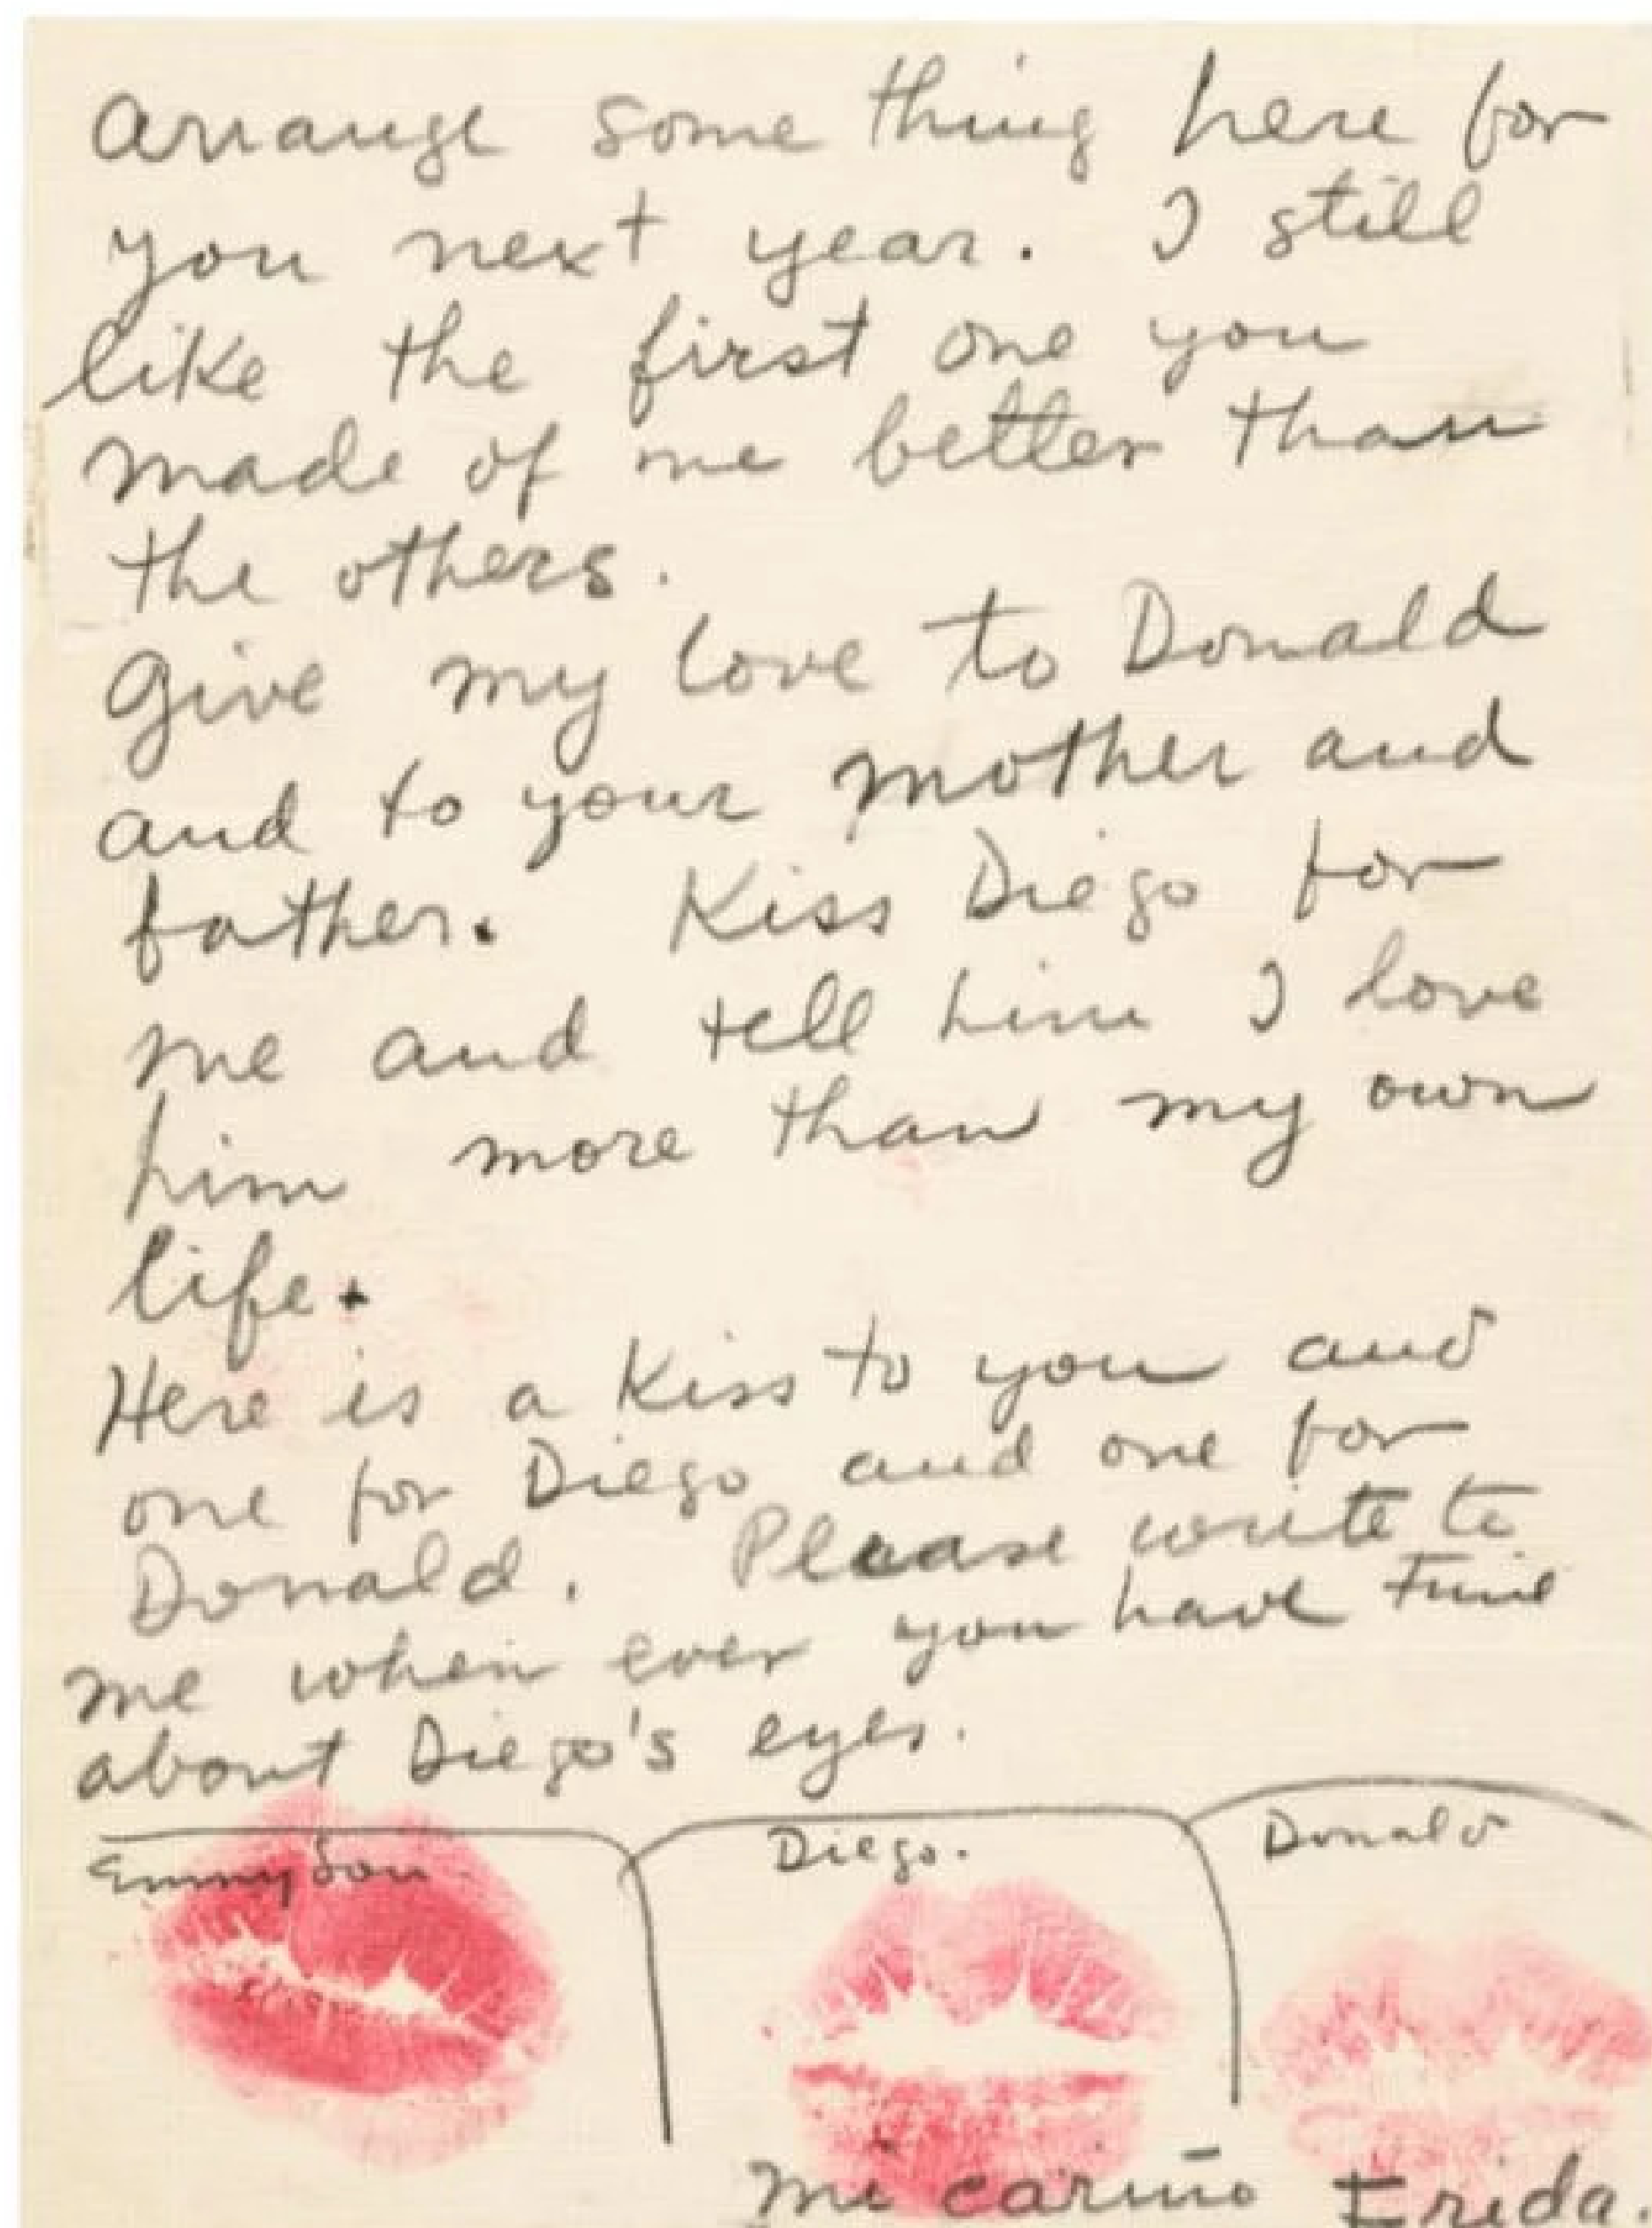 arrange some thing here for
you next year. I still
like the first one you
made of me better than
the others.
Give my love to Donald
and to your mother and
father. Kiss Diego for
me and tell him I love
him more than my own
life.
Here is a Kiss to you and
one for Diego and one for
Donald. Please write to
me when ever you have time
about Diego's eyes.
Emmy Lou
Diego.
Donald
Mi cariño Frida.